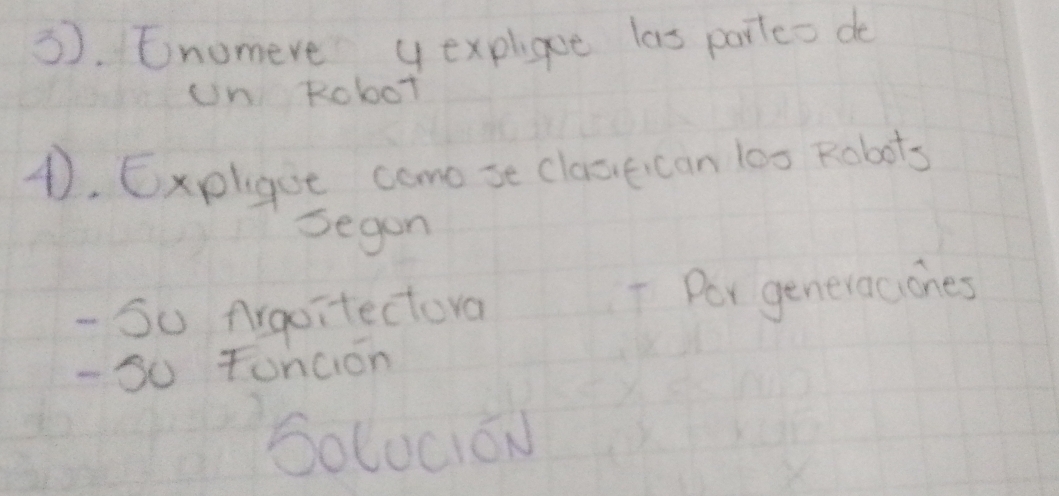 3). Enumere y explique las partes de
un Robot
4). Explique como se clasifican los Robots
Segun
- Su Arquitectura - Por generaciones
- Su Función
Solución